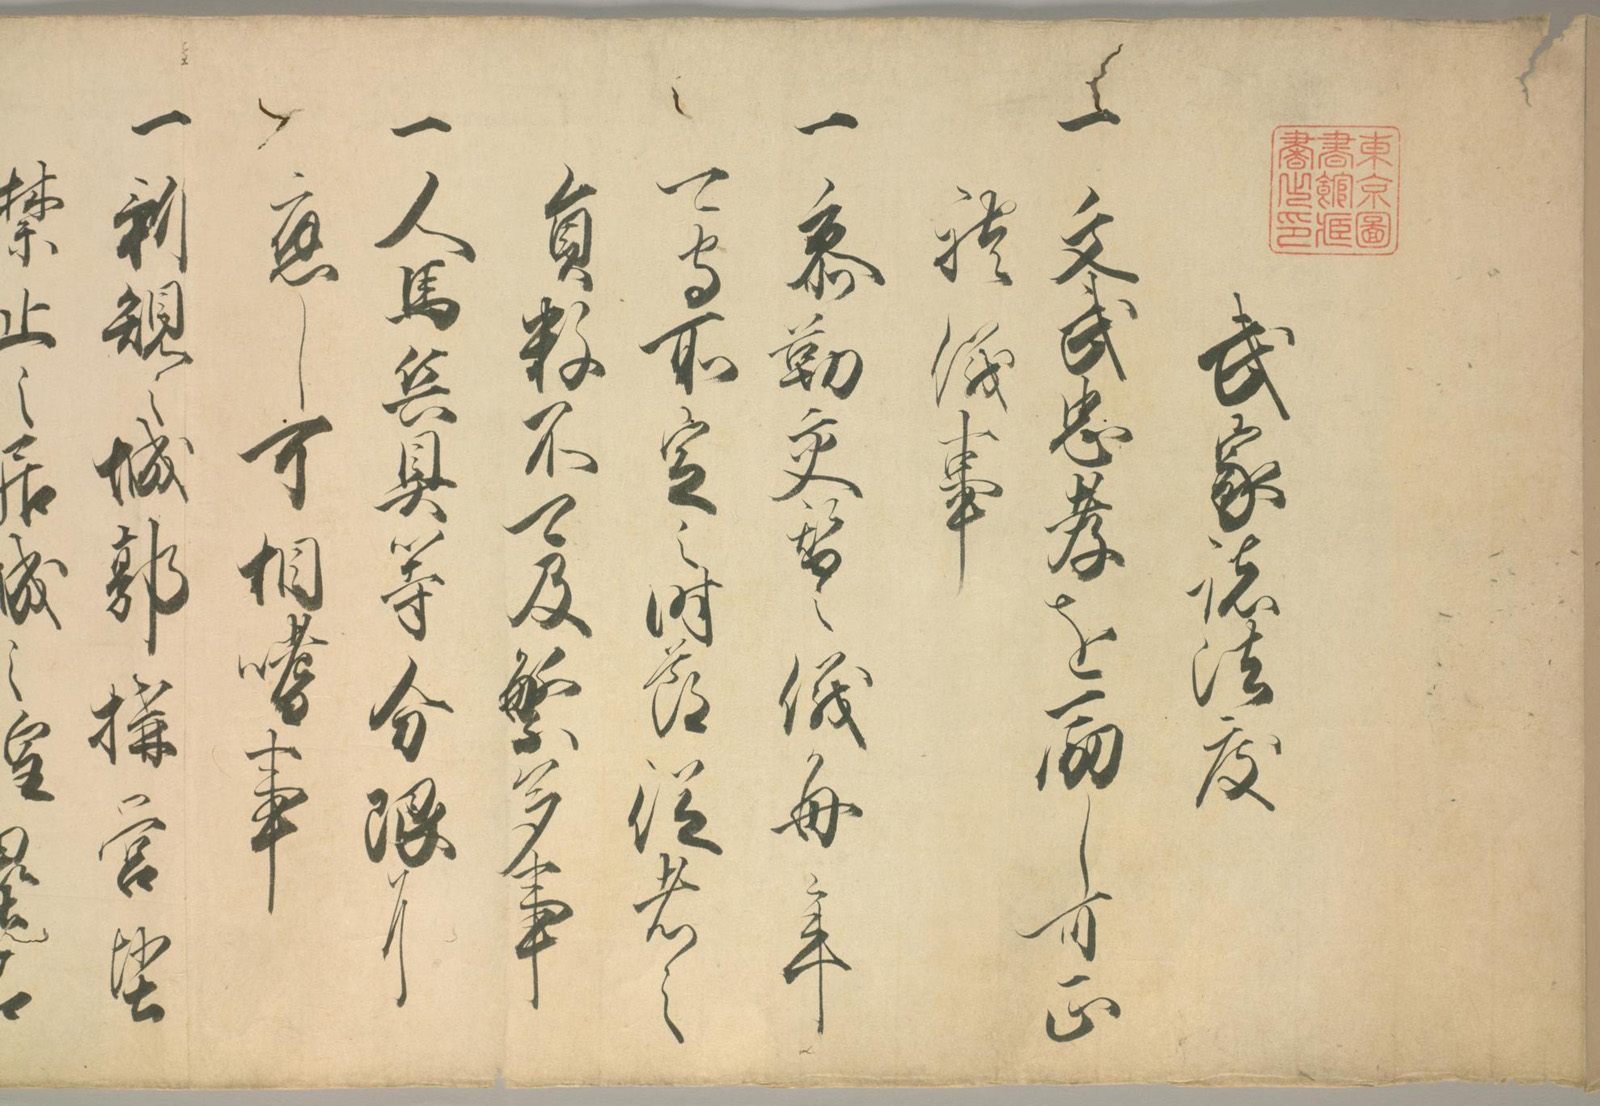 東京圖
書館臧
書之印
武家諸法度
一 文武忠孝を励し可正
禮儀事
一 参勤交替之儀毎年
可守所定之時節従者之
員数不可及繁多事
一 人馬兵具等分限に
應し可相嗜事
一 新規之城郭構営堅
禁止之居城之隍塁石